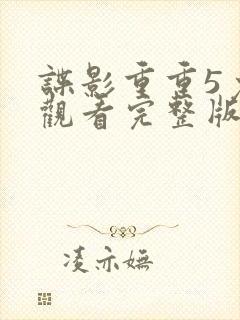 諜影重重5
觀看完整版
凌亦嫵